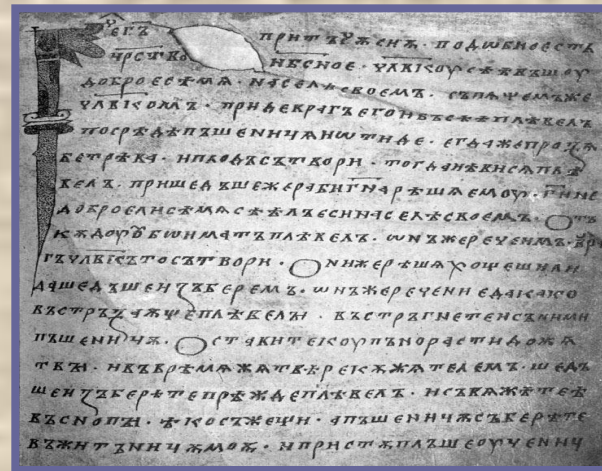 Рече г҃ъ притъчѫ сиѭ · подобно естъ
ц҃рство н҃бсное · ч҃лвкоу сѣѣвъшоу
доброе сѣмѧ · на селѣ своемъ · съпѧщемъже
ч҃лвкомъ · приде врагъ его и въсѣѣ плѣвелъ
посрѣдѣ пъшеницѧ и ѡтиде · егда же прозѧ
бе трѣва · и плодъ сътвори · тогда ꙗви сѧ плѣ
велъ · пришедъше же раби г҃на рѣшѧ емоу · г҃и не
доброе ли сѣмѧ сѣѣлъ еси на селѣ своемъ · Отъ
кѫдоу оубо иматъ плѣвелъ · ѡнъ же рече имъ · вра
гъ ч҃лвкъ то сътвори · Они же рѣшѧ хощеши ли
да шедъше изберемъ · ѡнъ же рече ни еда како
въстръзаѫще плѣвелы · въстръгнете и съ ними
пъшеницѫ · Оставите коупьно расти до жѧ
твы · и въ врѣмѧ жѧтвѣ рекѫ жѧтелемъ · шедъ
ше изберѣте прѣжде плѣвелъ · и съвѧжѣте ѣ
въ снопы · ѣко съжещи · а пъшеницѫ съберѣте
въ житъницѫ моѭ · и пристѫплъше оучениц